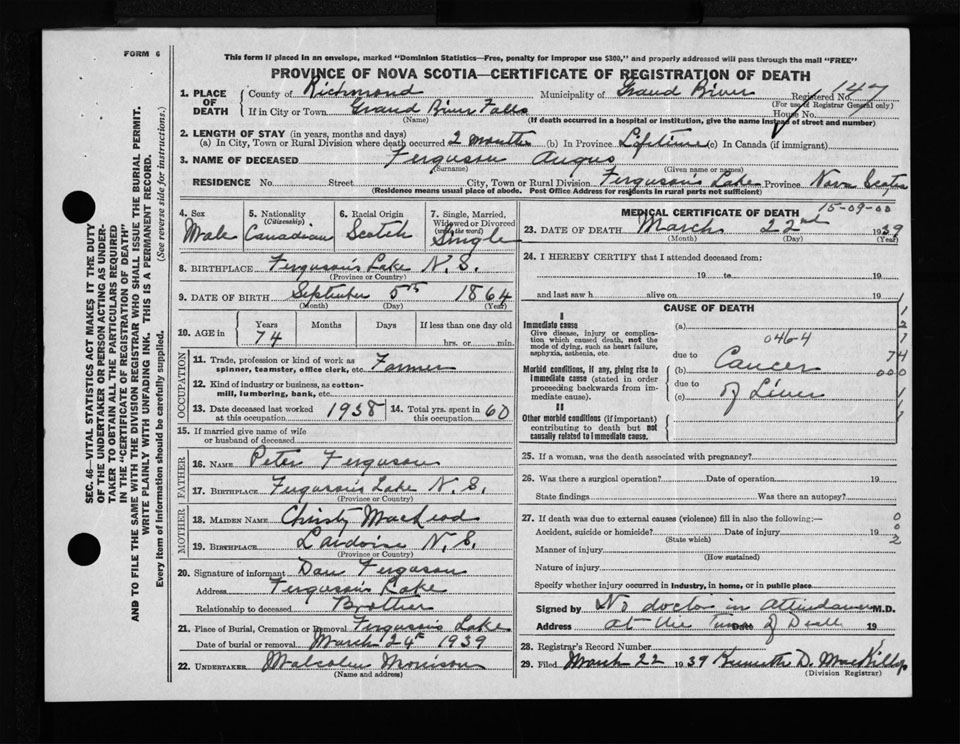 FORM 6
This form if placed in an envelope, marked "Dominion Statistics—Free, penalty for improper use $300," and properly addressed will pass through the mail "FREE"
PROVINCE OF NOVA SCOTIA—CERTIFICATE OF REGISTRATION OF DEATH
1. PLACE OF DEATH
County of Richmond Municipality of Grand River Registered No. 147
(For use of Registrar General only)
If in City or Town Grand River Falls House No.
(Name) (If death occurred in a hospital or institution, give the name instead of street and number)
2. LENGTH OF STAY (in years, months and days)
(a) In City, Town or Rural Division where death occurred 2 months (b) In Province Lifetime (c) In Canada (if immigrant)
3. NAME OF DECEASED Ferguson Angus
(Surname) (Given name or names)
RESIDENCE No. Street City, Town or Rural Division Ferguson's Lake Province Nova Scotia
(Residence means usual place of abode. Post Office Address for residents in rural parts not sufficient)
4. Sex Male
5. Nationality (Citizenship) Canadian
6. Racial Origin Scotch
7. Single, Married, Widowed or Divorced (write the word) Single
8. BIRTHPLACE Ferguson's Lake N.S.
(Province or Country)
9. DATE OF BIRTH September 5th 1864
(Month) (Day) (Year)
10. AGE in Years Months Days If less than one day old
74 hrs. or min.
OCCUPATION
11. Trade, profession or kind of work as spinner, teamster, office clerk, etc. Farmer
12. Kind of industry or business, as cotton-mill, lumbering, bank, etc.
13. Date deceased last worked at this occupation 1938
14. Total yrs. spent in this occupation 60
15. If married give name of wife or husband of deceased
FATHER
16. NAME Peter Ferguson
17. BIRTHPLACE Ferguson's Lake N.S.
(Province or Country)
MOTHER
18. MAIDEN NAME Christy MacLeod
19. BIRTHPLACE Lardoise N.S.
(Province or Country)
20. Signature of informant Dan Ferguson
Address Ferguson's Lake
Relationship to deceased Brother
21. Place of Burial, Cremation or Removal Ferguson's Lake
Date of burial or removal March 24th 1939
22. UNDERTAKER Malcolm Morrison
(Name and address)
MEDICAL CERTIFICATE OF DEATH 15-09-00
23. DATE OF DEATH March 22nd 1939
(Month) (Day) (Year)
24. I HEREBY CERTIFY that I attended deceased from:
19 to 19
and last saw h alive on 19
CAUSE OF DEATH
I
Immediate cause
Give disease, injury or complication which caused death, not the mode of dying, such as heart failure, asphyxia, asthenia, etc.
Morbid conditions, if any, giving rise to immediate cause (stated in order proceeding backwards from immediate cause).
II
Other morbid conditions (if important) contributing to death but not causally related to immediate cause.
(a)
0464
due to
(b) Cancer
due to
(c) of Liver
1
2
7
74
000
1
1
1
25. If a woman, was the death associated with pregnancy?
26. Was there a surgical operation? Date of operation 19
State findings Was there an autopsy?
27. If death was due to external causes (violence) fill in also the following:—
Accident, suicide or homicide? Date of injury 19
(State which)
0
0
2
Manner of injury
(How sustained)
Nature of injury
Specify whether injury occurred in industry, in home, or in public place
Signed by No doctor in attendance M.D.
Address at the Time of Death Date 19
28. Registrar's Record Number
29. Filed March 22 1939 Kenneth D. MacKillop
(Division Registrar)
SEC. 46—VITAL STATISTICS ACT MAKES IT THE DUTY
OF THE UNDERTAKER OR PERSON ACTING AS UNDER-
TAKER TO OBTAIN ALL THE PARTICULARS REQUIRED
IN THE "CERTIFICATE OF REGISTRATION OF DEATH"
AND TO FILE THE SAME WITH THE DIVISION REGISTRAR WHO SHALL ISSUE THE BURIAL PERMIT.
WRITE PLAINLY WITH UNFADING INK. THIS IS A PERMANENT RECORD.
Every item of information should be carefully supplied. (See reverse side for instructions.)